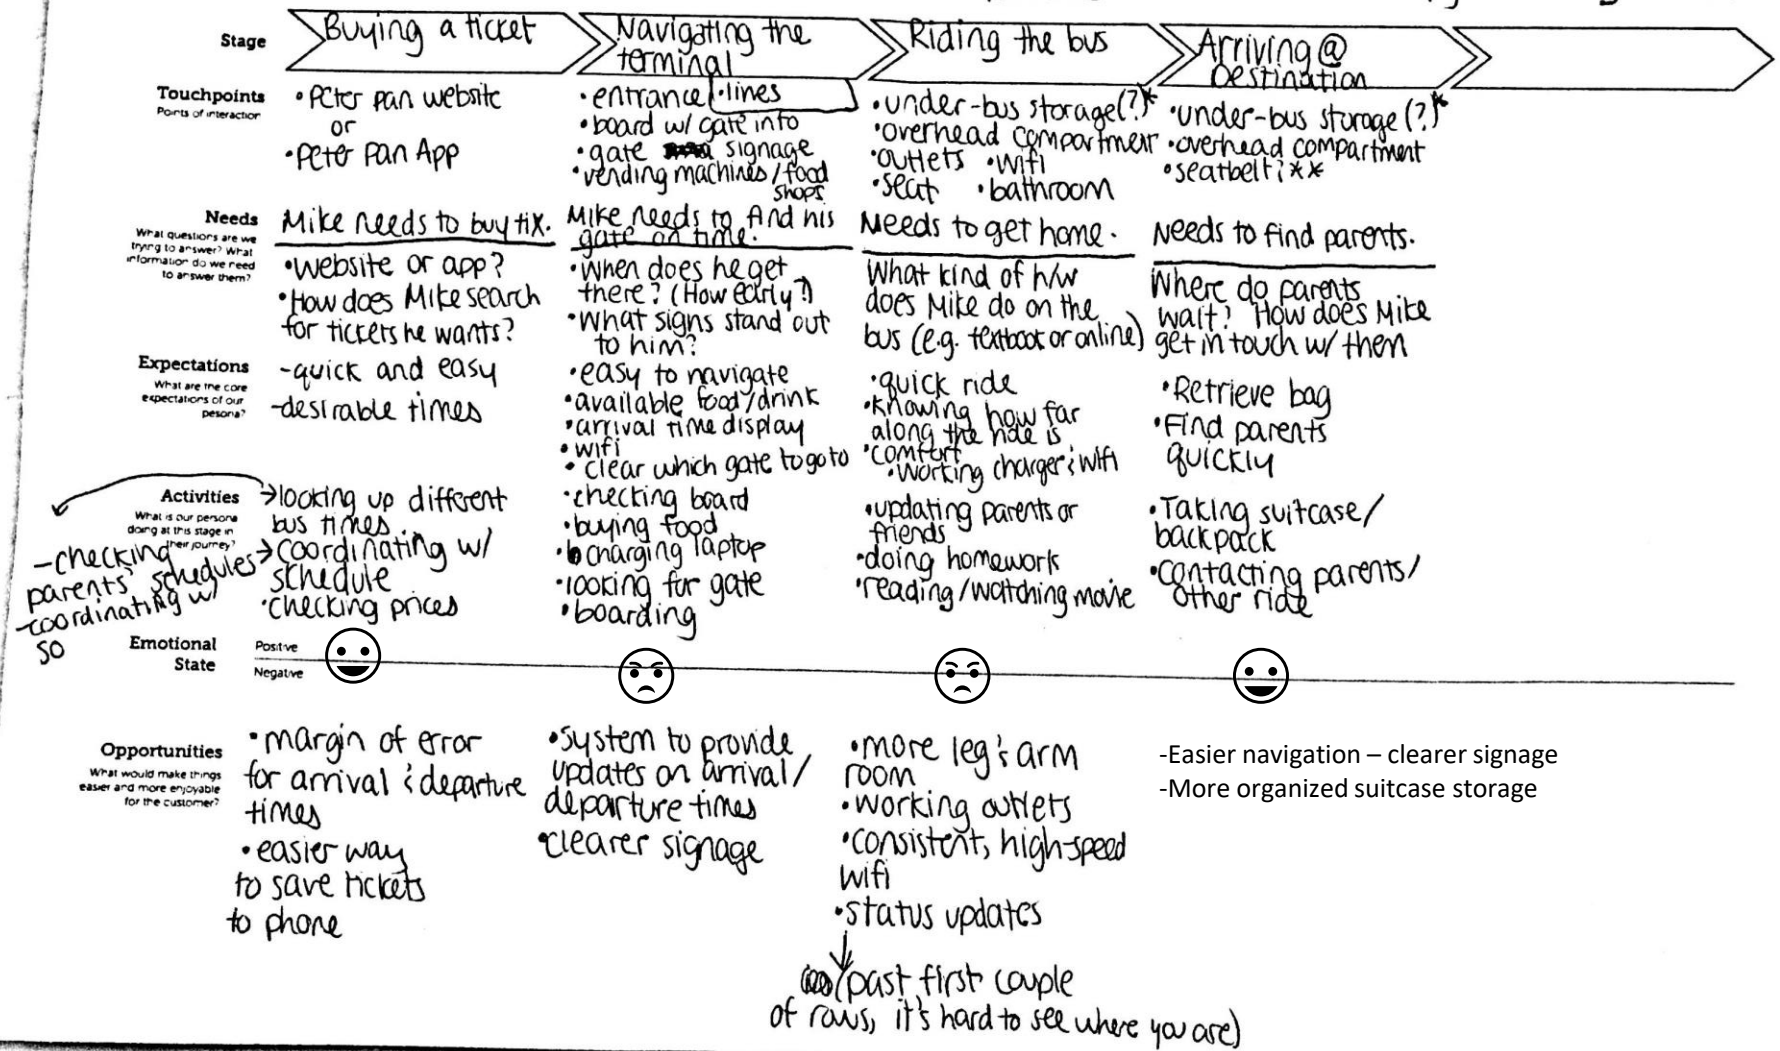 Stage
Buying a ticket
Navigating the
terminal
Riding the bus
Arriving @
Destination
Touchpoints
Points of interaction
• Peter Pan website
or
• Peter Pan App
• entrance • lines
• board w/ gate info
• gate signage
• vending machines/food
shops
• under-bus storage(?)*
• overhead compartment
• outlets • wifi
• seat • bathroom
• under-bus storage (?)*
• overhead compartment
• seatbelt?**
Needs
What questions are we
trying to answer? What
information do we need
to answer them?
Mike needs to buy tix.
• Website or app?
• How does Mike search
for tickets he wants?
Mike needs to find his
gate on time.
• When does he get
there? (How early?)
• What signs stand out
to him?
Needs to get home.
What kind of h/w
does Mike do on the
bus (e.g. textbook or online)
Needs to find parents.
Where do parents
wait? How does Mike
get in touch w/ them
Expectations
What are the core
expectations of our
pesona?
- quick and easy
- desirable times
• easy to navigate
• available food/drink
• arrival time display
• wifi
• clear which gate to go to
• quick ride
• knowing how far
along the ride is
• comfort
• working charger & wifi
• Retrieve bag
• Find parents
quickly
Activities
What is our persona
doing at this stage in
their journey?
→ looking up different
bus times
→ coordinating w/
schedule
• checking prices
- checking
parents' schedules
- coordinating w/
SO
• checking board
• buying food
• charging laptop
• looking for gate
• boarding
• updating parents or
friends
• doing homework
• reading/watching movie
• Taking suitcase/
backpack
• Contacting parents/
other ride
Emotional
State
Positive
Negative
Opportunities
What would make things
easier and more enjoyable
for the customer?
• margin of error
for arrival & departure
times
• easier way
to save tickets
to phone
• system to provide
updates on arrival/
departure times
• clearer signage
• more leg & arm
room
• working outlets
• consistent, high-speed
wifi
• status updates
(past first couple
of rows, it's hard to see where you are)
-Easier navigation – clearer signage
-More organized suitcase storage